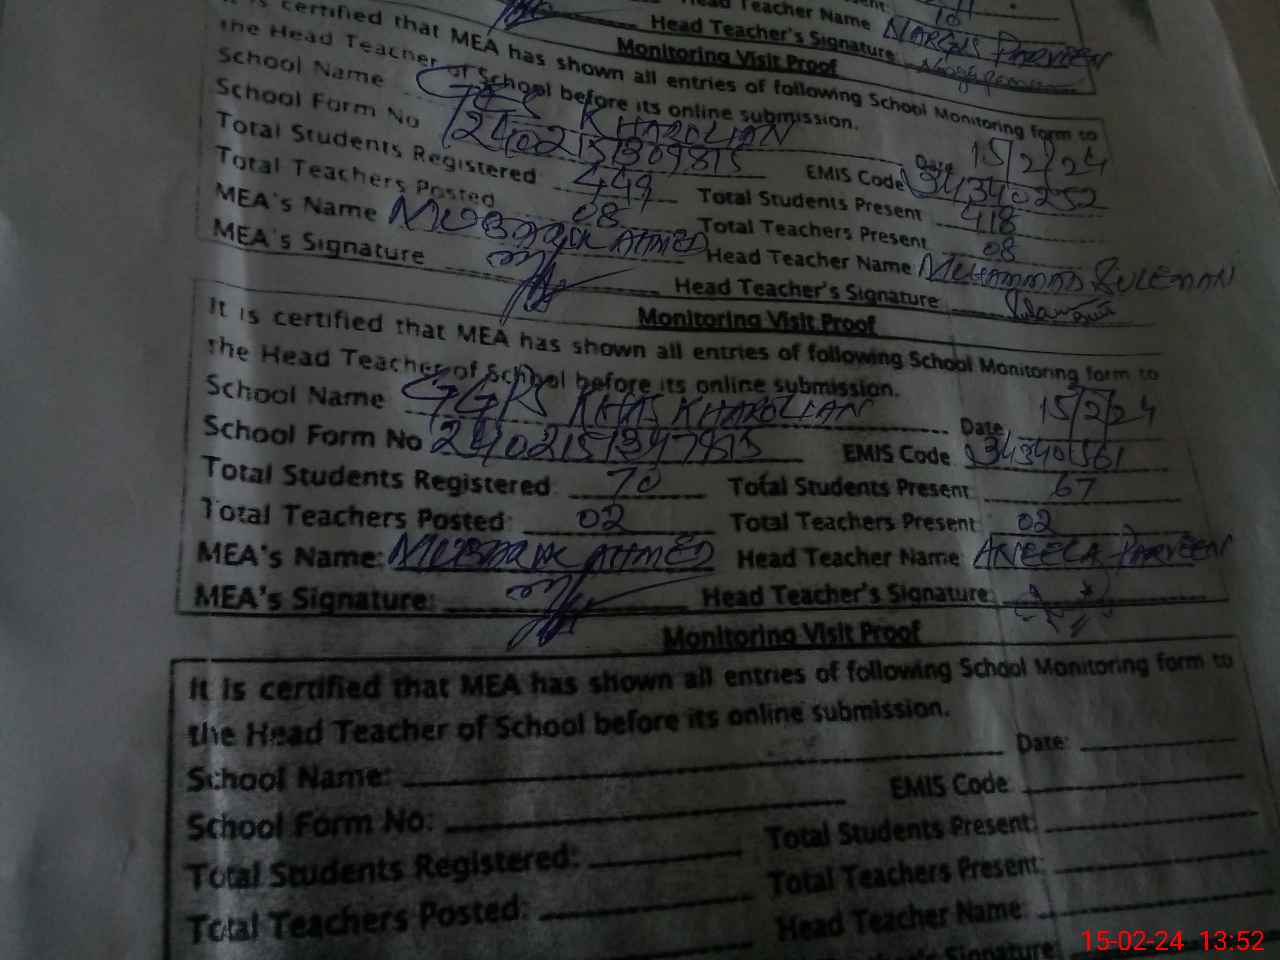 Head Teacher Name NARGIS PARVEEN
Head Teacher's Signature
Monitoring Visit Proof
It is certified that MEA has shown all entries of following School Monitoring form to
the Head Teacher of School before its online submission.
School Name GES KHAROLIAN Date 15/2/24
School Form No 2402151309815 EMIS Code 34340252
Total Students Registered 449 Total Students Present 418
Total Teachers Posted 08 Total Teachers Present 08
MEA's Name MUBARAK AHMED Head Teacher Name MUHAMMAD SULEMAN
MEA's Signature Head Teacher's Signature
Monitoring Visit Proof
It is certified that MEA has shown all entries of following School Monitoring form to
the Head Teacher of School before its online submission.
School Name GGPS KHAS KHAROLIAN Date 15/2/24
School Form No 2402151347815 EMIS Code 34340561
Total Students Registered 70 Total Students Present 67
Total Teachers Posted: 02 Total Teachers Present 02
MEA's Name: MUBARAK AHMED Head Teacher Name: ANEELA PARVEEN
MEA's Signature: Head Teacher's Signature:
Monitoring Visit Proof
It is certified that MEA has shown all entries of following School Monitoring form to
the Head Teacher of School before its online submission.
School Name: Date:
School Form No: EMIS Code
Total Students Registered: Total Students Present:
Total Teachers Posted: Total Teachers Present:
Head Teacher Name:
Signature:
15-02-24 13:52